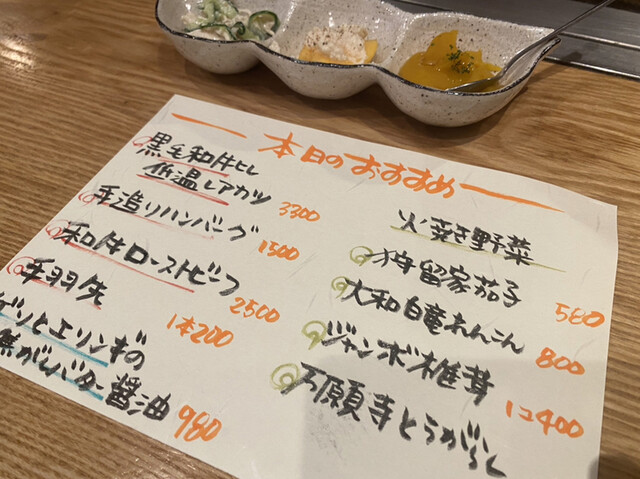 本日のおすすめ
黒毛和牛ヒレ
低温レアカツ 3300
手造りハンバーグ 1500
和牛ローストビーフ 2500
手羽先 1本200
ゲソとエリンギの
焦がしバター醤油 980
野菜
狩留家茄子 580
大和白竜れんこん 800
ジャンボ椎茸 1コ400
万願寺とうがらし